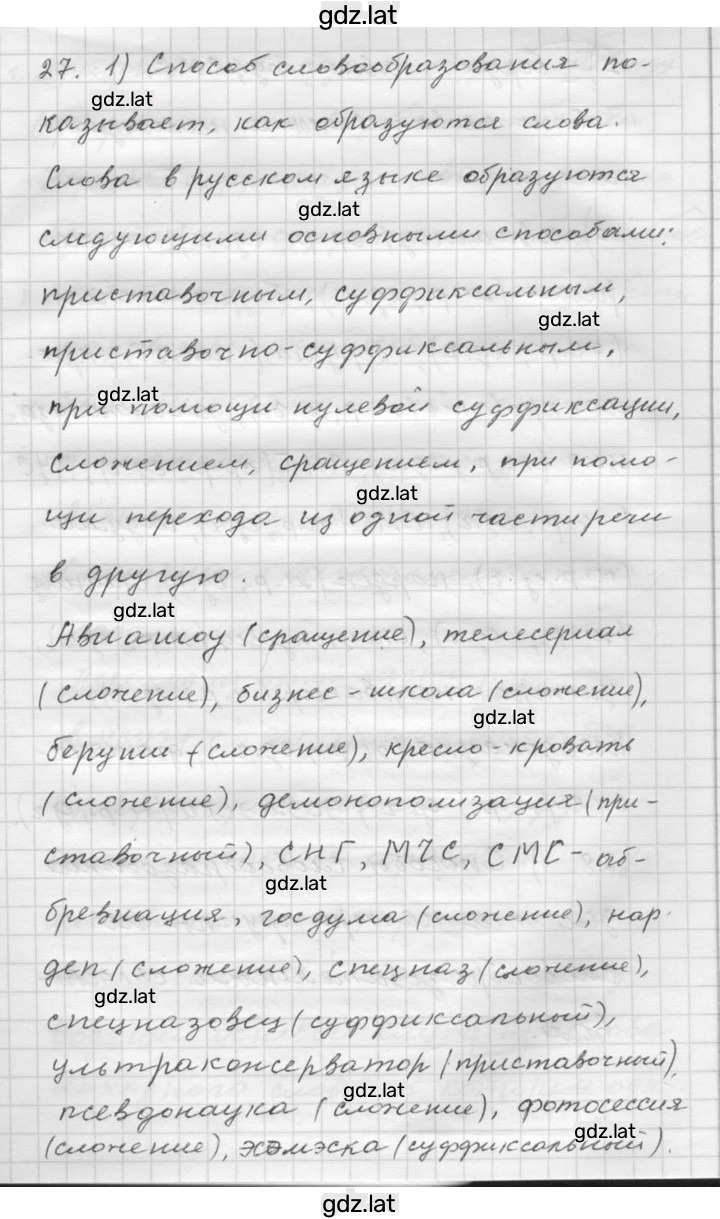 gdz.lat
27. 1) Способ словообразования по-
gdz.lat
казывает, как образуются слова.
Слова в русском языке образуются
gdz.lat
следующими основными способами:
приставочным, суффиксальным,
gdz.lat
приставочно-суффиксальным,
gdz.lat
при помощи нулевой суффиксации,
сложением, сращением, при помо-
gdz.lat
щи перехода из одной части речи
в другую.
gdz.lat
Авиашоу (сращение), телесериал
(сложение), бизнес-школа (сложение),
gdz.lat
беруши (сложение), кресло-кровать
(сложение), демонополизация (при-
ставочный), СНГ, МЧС, СМС - аб-
gdz.lat
бревиация, госдума (сложение), нар-
деп (сложение), спецназ (сложение),
gdz.lat
спецназовец (суффиксальный),
ультраконсерватор (приставочный),
gdz.lat
псевдонаука (сложение), фотосессия
gdz.lat
(сложение), эсэмэска (суффиксальный).
gdz.lat